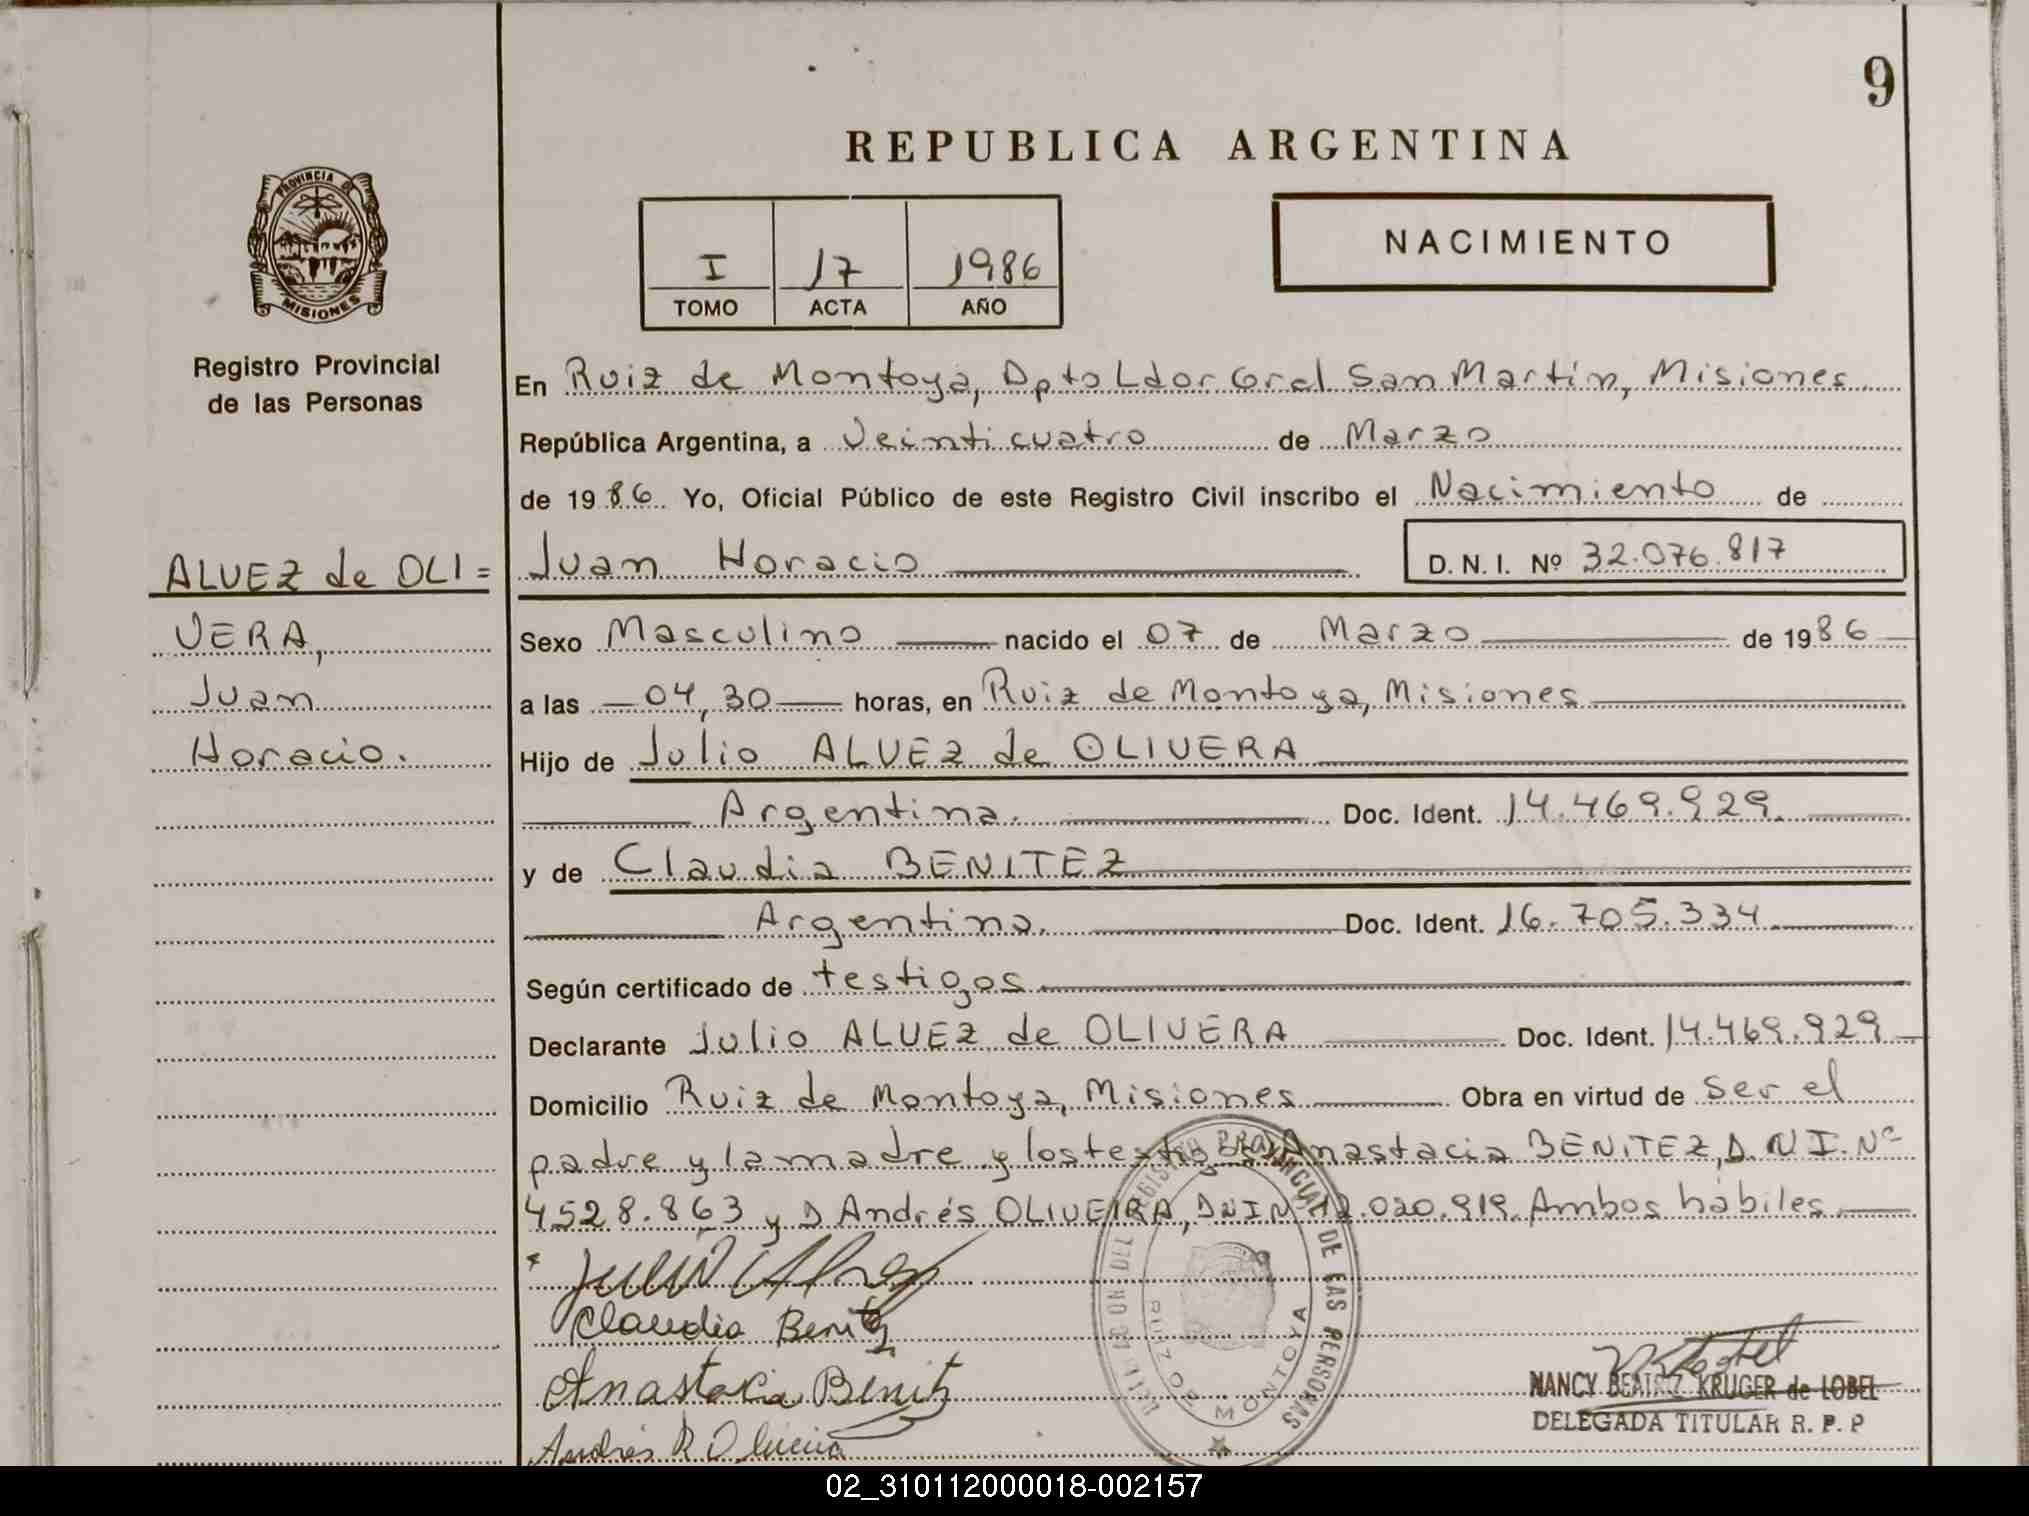 9
REPUBLICA ARGENTINA
PROVINCIA DE
MISIONES
I 17 1986
TOMO ACTA AÑO
NACIMIENTO
Registro Provincial
de las Personas
En Ruiz de Montoya, Dpto Ldor Gral San Martín, Misiones
República Argentina, a Veinticuatro de Marzo
de 1986 Yo, Oficial Público de este Registro Civil inscribo el Nacimiento de
ALVEZ de OLI=
VERA,
Juan
Horacio.
Juan Horacio D.N.I. Nº 32.076.817
Sexo Masculino nacido el 07 de Marzo de 1986
a las 04,30 horas, en Ruiz de Montoya, Misiones
Hijo de Julio ALVEZ de OLIVERA
Argentina. Doc. Ident. 14.469.929.
y de Claudia BENITEZ
Argentina. Doc. Ident. 16.705.334
Según certificado de testigos
Declarante Julio ALVEZ de OLIVERA Doc. Ident. 14.469.929
Domicilio Ruiz de Montoya, Misiones Obra en virtud de ser el
padre y la madre y los testigos Anastacia BENITEZ, D.N.I. Nº
4528.863 y D Andrés OLIVEIRA, DNI Nº 12.020.919. Ambos hábiles
Claudia Benitez
Anastacia Benitz
Andrés R Oliveira
DEL REGISTRO PROVINCIAL DE LAS PERSONAS
RUIZ DE MONTOYA
NANCY BEATRIZ KRUGER de LOBEL
DELEGADA TITULAR R. P. P
02_310112000018-002157